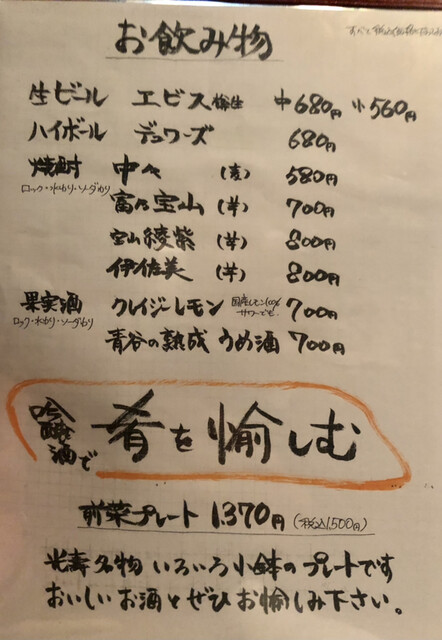 お飲み物
生ビール エビス 中680円 小560円
ハイボール デュワーズ 680円
焼酎 中々 (麦) 580円
ロック・水わり・ソーダわり
富乃宝山 (芋) 700円
宝山綾紫 (芋) 800円
伊佐美 (芋) 800円
果実酒 クレイジーレモン 国産レモン100% サワーでも 700円
ロック・水わり・ソーダわり
青谷の熟成 うめ酒 700円
吟醸酒で 肴を愉しむ
前菜プレート 1.370円 (税込1,500円)
光壽名物 いろいろ小鉢のプレートです
おいしいお酒とぜひお愉しみ下さい。